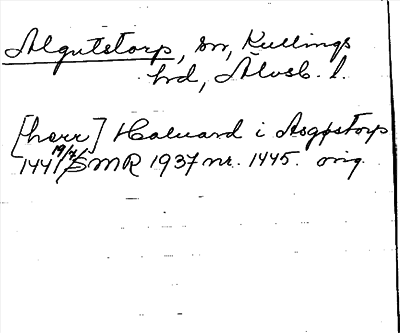 Algutstorp, sn, Kullings
hd, Älvsb. l.
[herr] Haluard i Asgpstorp
1441 19/7 SMR 1937 nr. 1445. orig.